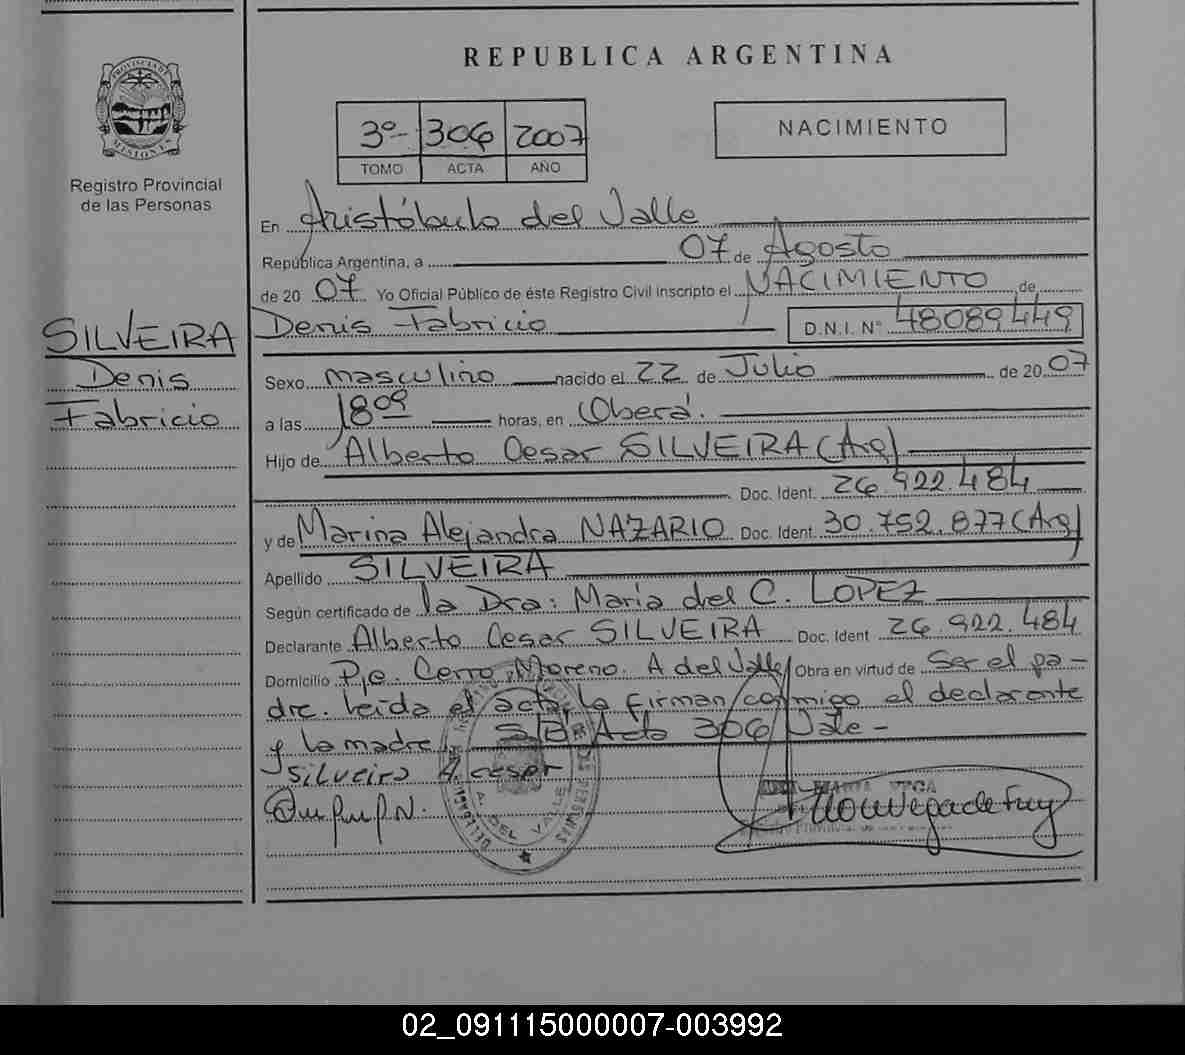 REPUBLICA ARGENTINA
PROVINCIA DE
MISIONES
Registro Provincial
de las Personas
3º- 306 2007
TOMO ACTA AÑO
NACIMIENTO
En Aristóbulo del Valle
República Argentina, a 07 de Agosto
de 20 07 Yo Oficial Público de éste Registro Civil inscripto el NACIMIENTO de
SILVEIRA
Denis
Fabricio
Denis Fabricio D.N.I. Nº 48089449
Sexo masculino nacido el 22 de Julio de 20 07
a las 18 09 horas, en Oberá.
Hijo de Alberto Cesar SILVEIRA (Arg)
Doc. Ident. 26.922.484
y de Marina Alejandra NAZARIO Doc. Ident. 30.752.877 (Arg)
Apellido SILVEIRA
Según certificado de la Dra: Maria del C. LOPEZ
Declarante Alberto Cesar SILVEIRA Doc. Ident 26.922.484
Domicilio Pje. Cerro Moreno. A del Valle Obra en virtud de Ser el pa-
dre. Leida el acta, la firman conmigo el declarante
y la madre. S/B Acta 306 Vale-
Silveira A. cesar
A. DEL VALLE
02_091115000007-003992